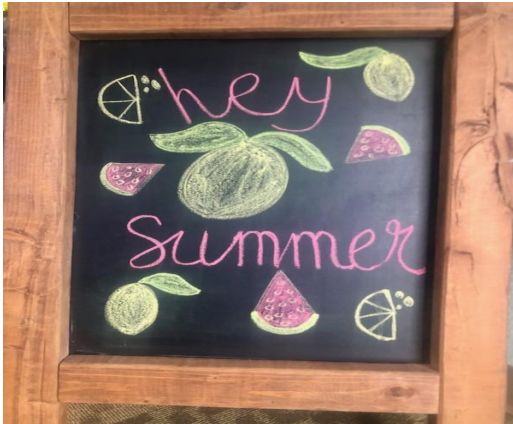 hey
summer